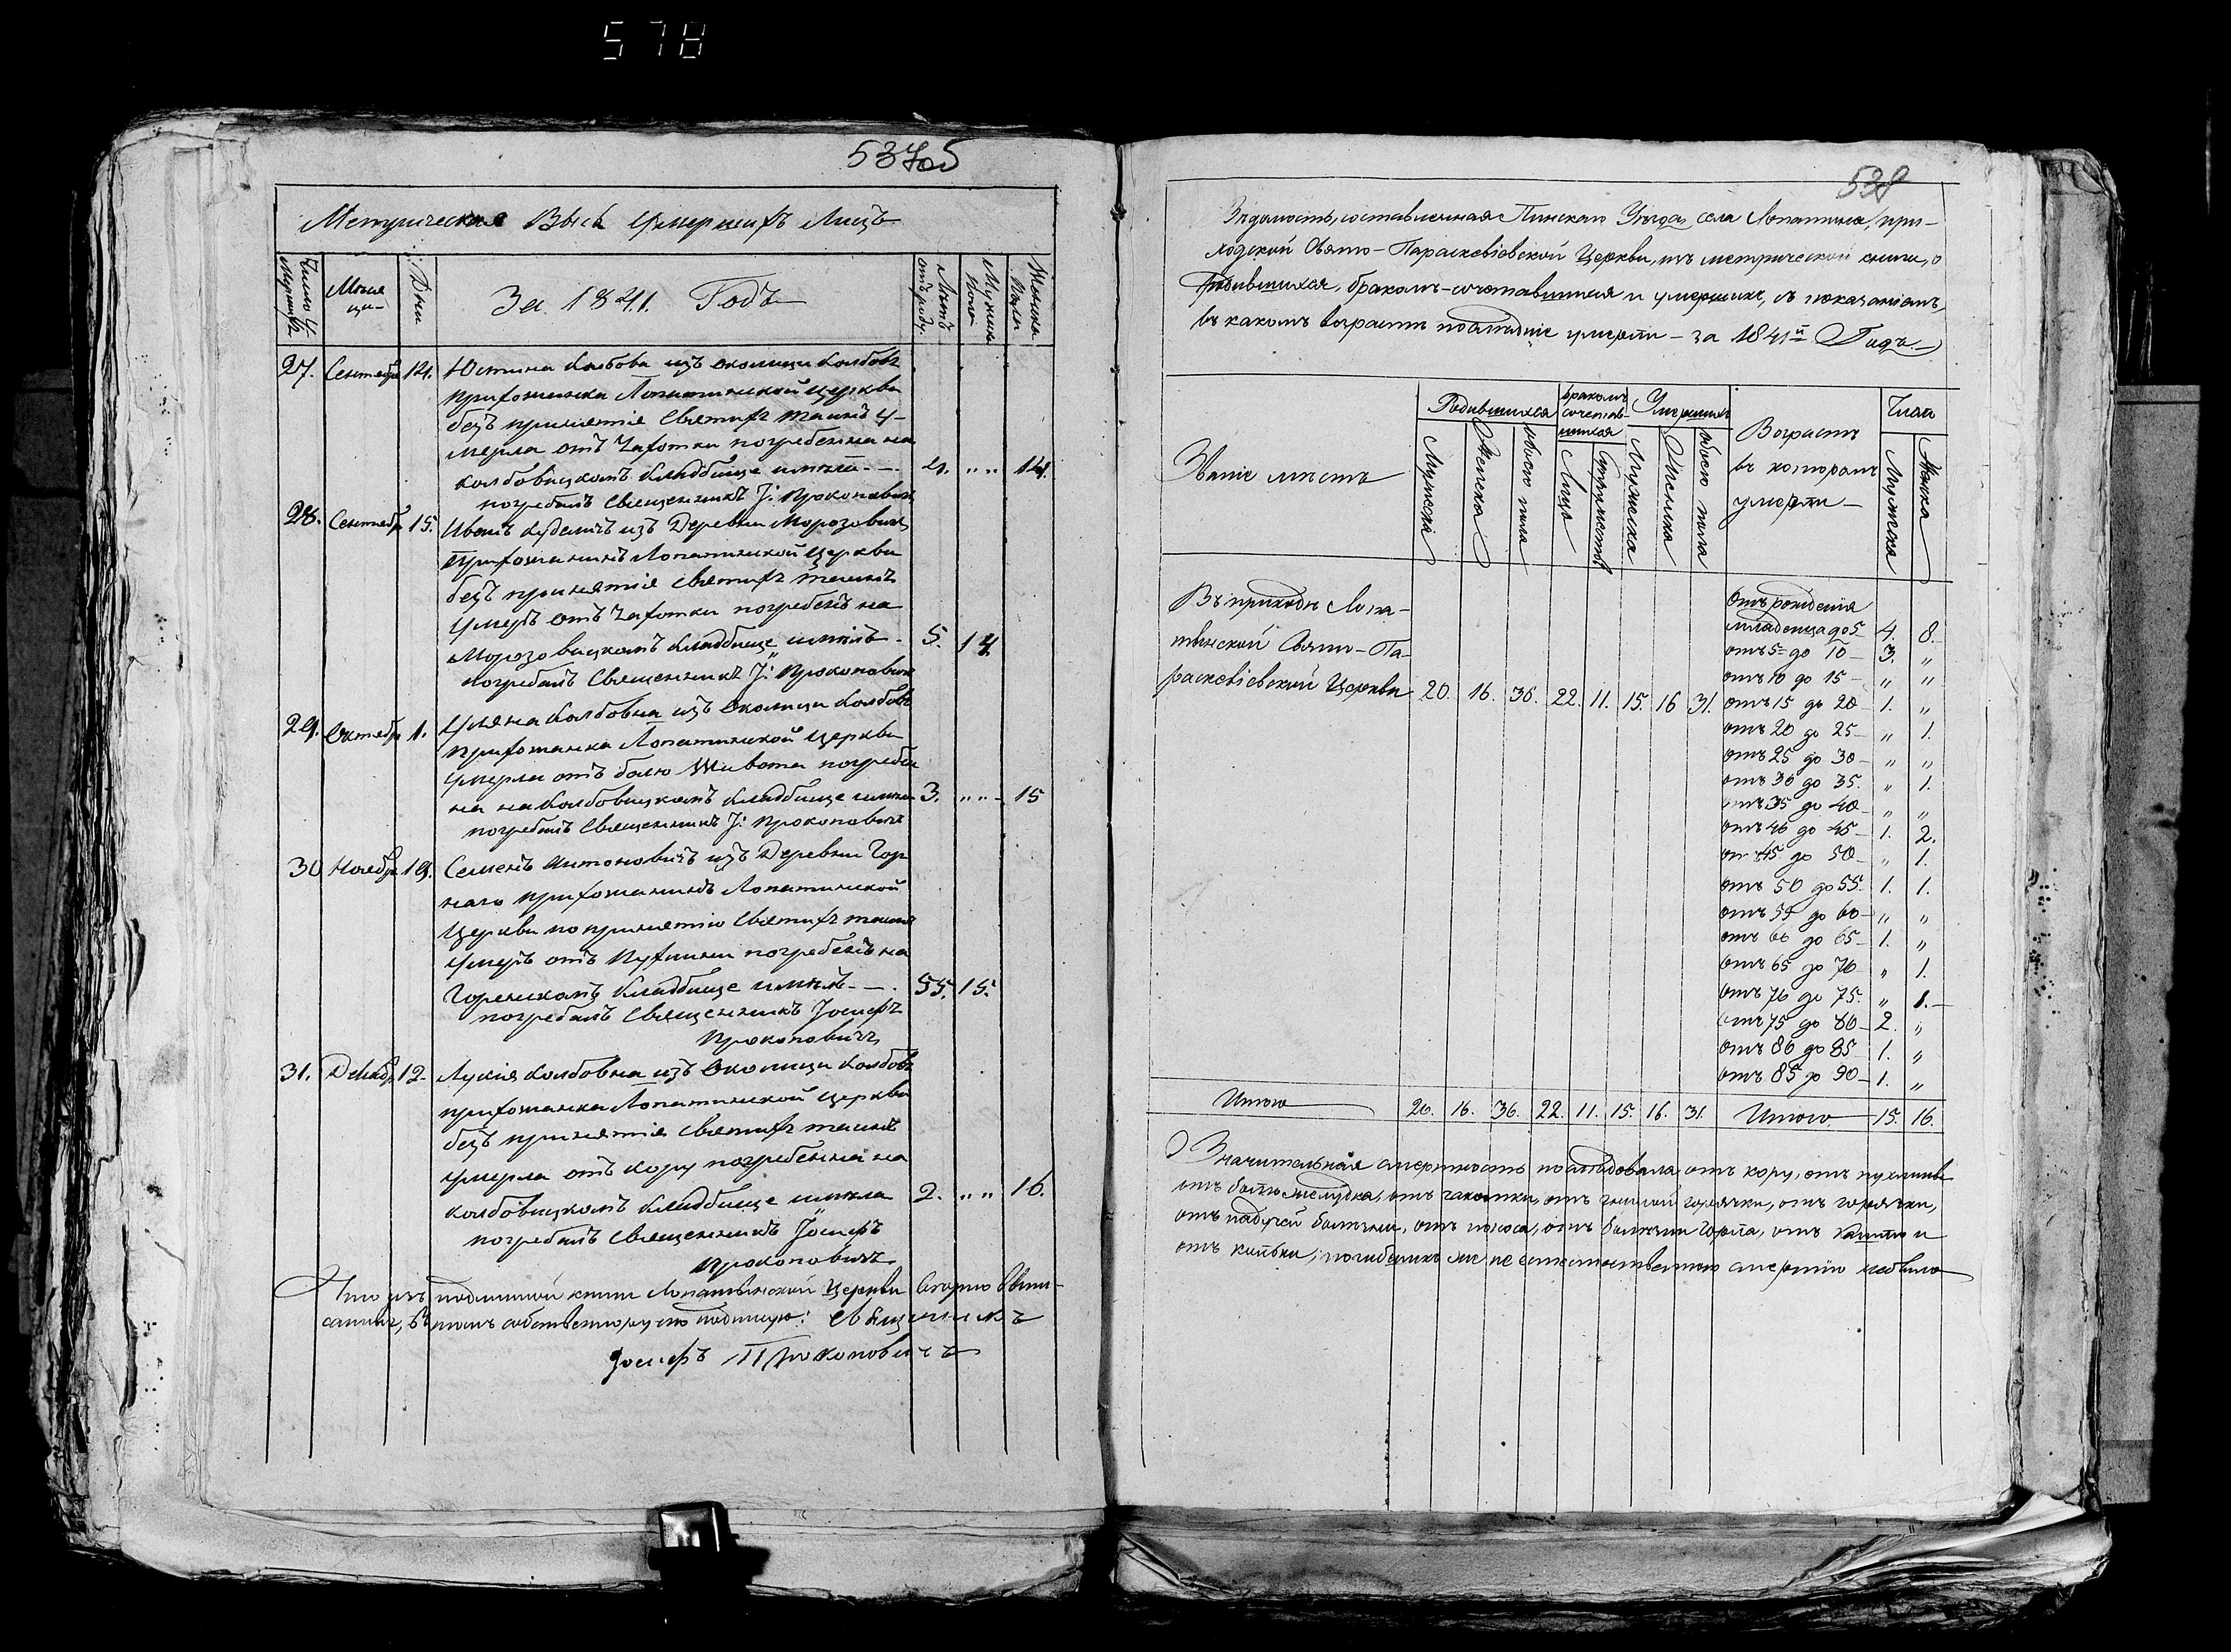 578
537об
Метрическая Выпись умершихъ Лицъ
Число Умершихъ
Мѣсяцы
Дни
За 1841. Годъ
Лѣтъ отъ роду
Мужска Пола
Женска Пола
27. Сентября 12. Юстина Колбова изъ околицы Колбовъ
прихожанка Лопатинской Церкви
безъ принятія Святихъ таинъ у-
мерла отъ Чахотки погребенна на
Колбовицкомъ Кладбище имѣла 4. „ „ 14.
погребалъ Священникъ І: Прокоповичъ
28. Сентября 15. Иванъ Куделичъ изъ Деревни Морозовичъ
Прихожанинъ Лопатинской Церкви
безъ принятія Святихъ таинъ
умеръ отъ Чахотки погребенъ на
Морозовицкомъ Кладбище имѣлъ 5. 14
погребалъ Священникъ І: Прокоповичъ
29. Октября 1. Уляна Колбовна изъ Околицы Колбовъ
прихожанка Лопатинской Церкви
умерла отъ болю Живота погребен
на на Колбовицкомъ Кладбище имѣла 3. „ „ 15
погребалъ Священникъ І: Прокоповичъ
30 Ноября 19. Семенъ Антоновичъ изъ Деревни Гор
наго прихожанинъ Лопатинской
Церкви по принятію Святихъ таинъ
умеръ отъ Пухлини погребенъ на
Горенскомъ Кладбище имѣлъ 55. 15.
погребалъ Священникъ Іосифъ
Прокоповичъ
31. Декабр 12. Лукія Колбовна изъ Околицы Колбовъ
прихожанка Лопатинской Церкви
безъ принятія Святихъ таинъ
умерла отъ Кору погребенна на
Колбовицкомъ Кладбище имѣла 2. „ „ 16.
погребалъ Священникъ Іосифъ
Прокоповичъ
Что изъ подлинной книги Лопатинской Церкви вѣрно выпи-
санны, въ томъ собственоручно подпишу: Священникъ
Іосифъ Прокоповичъ
538
Вѣдомость, составленная Пинскаго Уѣзда, села Лопатина, при-
ходской Свято-Параскевіевской Церкви, изъ метрической книги, о
Родившихся, бракомъ-сочетавшихся и умершихъ, съ показаніемъ,
въ какомъ возрастѣ послѣдніе умерли - за 1841й Годъ.
Званіе мѣстъ
Родившихся
Мужска
Женска
обоего пола
Бракомъ сочетав-шихся
Лицъ
Супружествъ
Умершихъ
Мужеска
Женска
обоего пола
Возрастъ
въ которомъ
умерли -
Число
Мужеска
Женска
Въ приходѣ Лопа-
тинской Свято-Па-
раскевіевской Церкви 20. 16. 36. 22. 11. 15. 16 31.
Отъ рожденія
младенца до 5 4. 8.
отъ 5 до 10 - 3. „
отъ 10 до 15 - „ „
отъ 15 до 20 - 1. „
отъ 20 до 25 - „ 1.
отъ 25 до 30 - „ „
отъ 30 до 35. „ 1.
отъ 35 до 40 - „ „
отъ 40 до 45 - 1. 2.
отъ 45 до 50 - „ 1.
отъ 50 до 55. 1. 1.
отъ 55 до 60 - „ „
отъ 60 до 65 - 1. „
отъ 65 до 70 „ 1.
отъ 70 до 75. „ 1. -
отъ 75 до 80 - 2. „
отъ 80 до 85 1. „
отъ 85 до 90 - 1. „
Итого 20. 16. 36. 22. 11. 15. 16. 31. Итого 15. 16.
Значительная смертность послѣдовала отъ кору, отъ пухлины
отъ болю желудка, отъ чахотки, отъ гнилой горячки, отъ горячки,
отъ падучей болѣзни, отъ поноса, отъ болѣзни горла, отъ кашлю и
отъ колтки; погибшихъ же не естественною смертію небыло